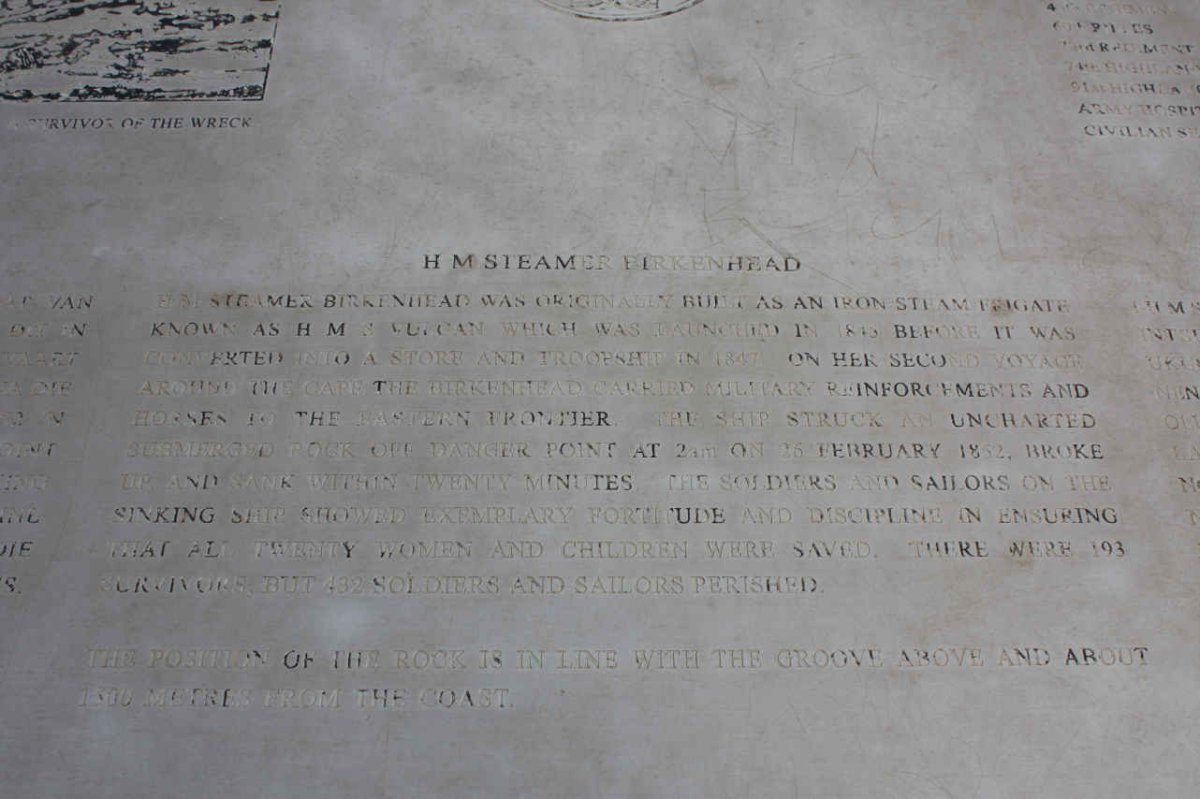 SURVIVOR OF THE WRECK
REGIMENT
CIVILIAN
H M STEAMER BIRKENHEAD
H M STEAMER BIRKENHEAD WAS ORIGINALLY BUILT AS AN IRON STEAM FRIGATE
KNOWN AS H M S VULCAN WHICH WAS LAUNCHED IN 1845 BEFORE IT WAS
CONVERTED INTO A STORE AND TROOPSHIP IN 1847. ON HER SECOND VOYAGE
AROUND THE CAPE THE BIRKENHEAD CARRIED MILITARY REINFORCEMENTS AND
HORSES TO THE EASTERN FRONTIER. THE SHIP STRUCK AN UNCHARTED
SUBMERGED ROCK OFF DANGER POINT AT 2am ON 26 FEBRUARY 1852, BROKE
UP AND SANK WITHIN TWENTY MINUTES. THE SOLDIERS AND SAILORS ON THE
SINKING SHIP SHOWED EXEMPLARY FORTITUDE AND DISCIPLINE IN ENSURING
THAT ALL TWENTY WOMEN AND CHILDREN WERE SAVED. THERE WERE 193
SURVIVORS, BUT 432 SOLDIERS AND SAILORS PERISHED.
THE POSITION OF THE ROCK IS IN LINE WITH THE GROOVE ABOVE AND ABOUT
1500 METRES FROM THE COAST.
VAN
DIE